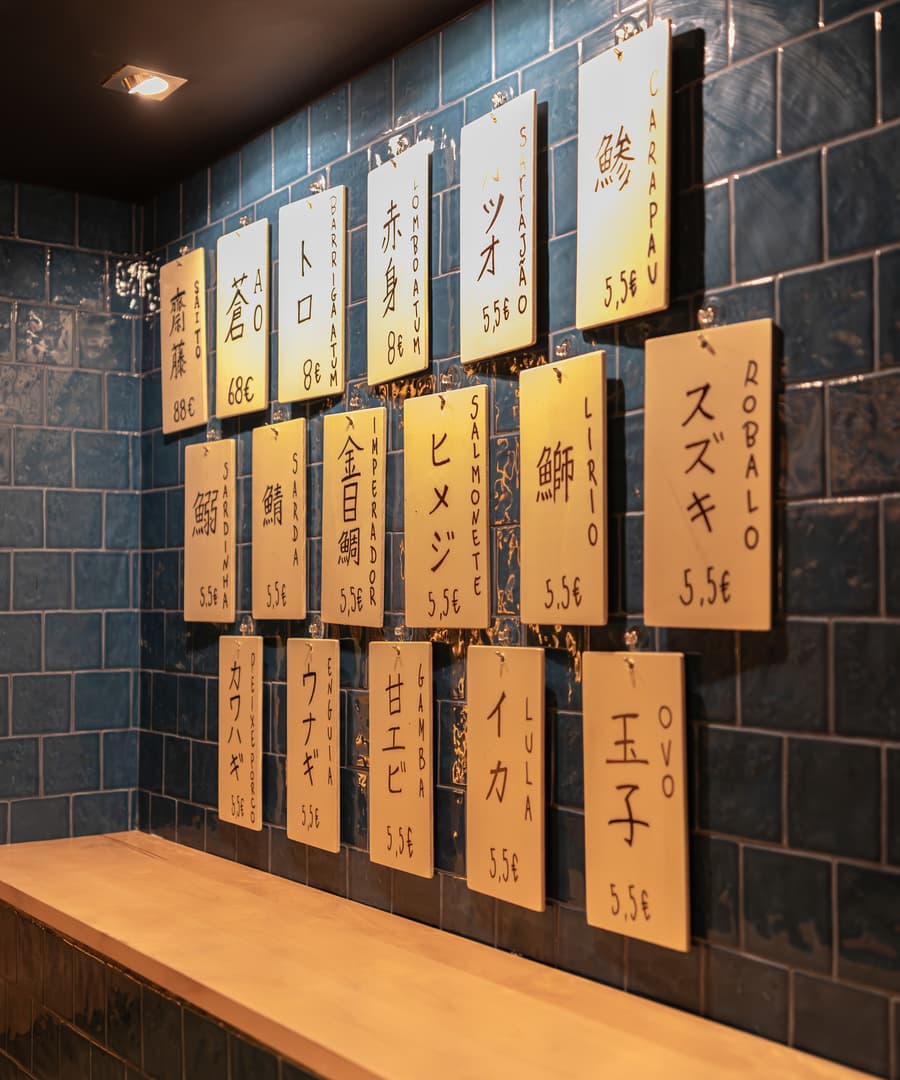 齋藤
SAITO
88€
蒼
AO
68€
トロ
BARRIGA ATUM
8€
赤身
LOMBO ATUM
8€
ツオ
SARRAJÃO
5,5€
鯵
CARAPAU
5,5€
鰯
SARDINHA
5,5€
鯖
SARDA
5,5€
金目鯛
IMPERADOR
5,5€
ヒメジ
SALMONETE
5,5€
鰤
LIRIO
5,5€
スズキ
ROBALO
5,5€
カワハギ
PEIXE PORCO
5,5€
ウナギ
ENGUIA
5,5€
甘エビ
GAMBA
5,5€
イカ
LULA
5,5€
玉子
OVO
5,5€